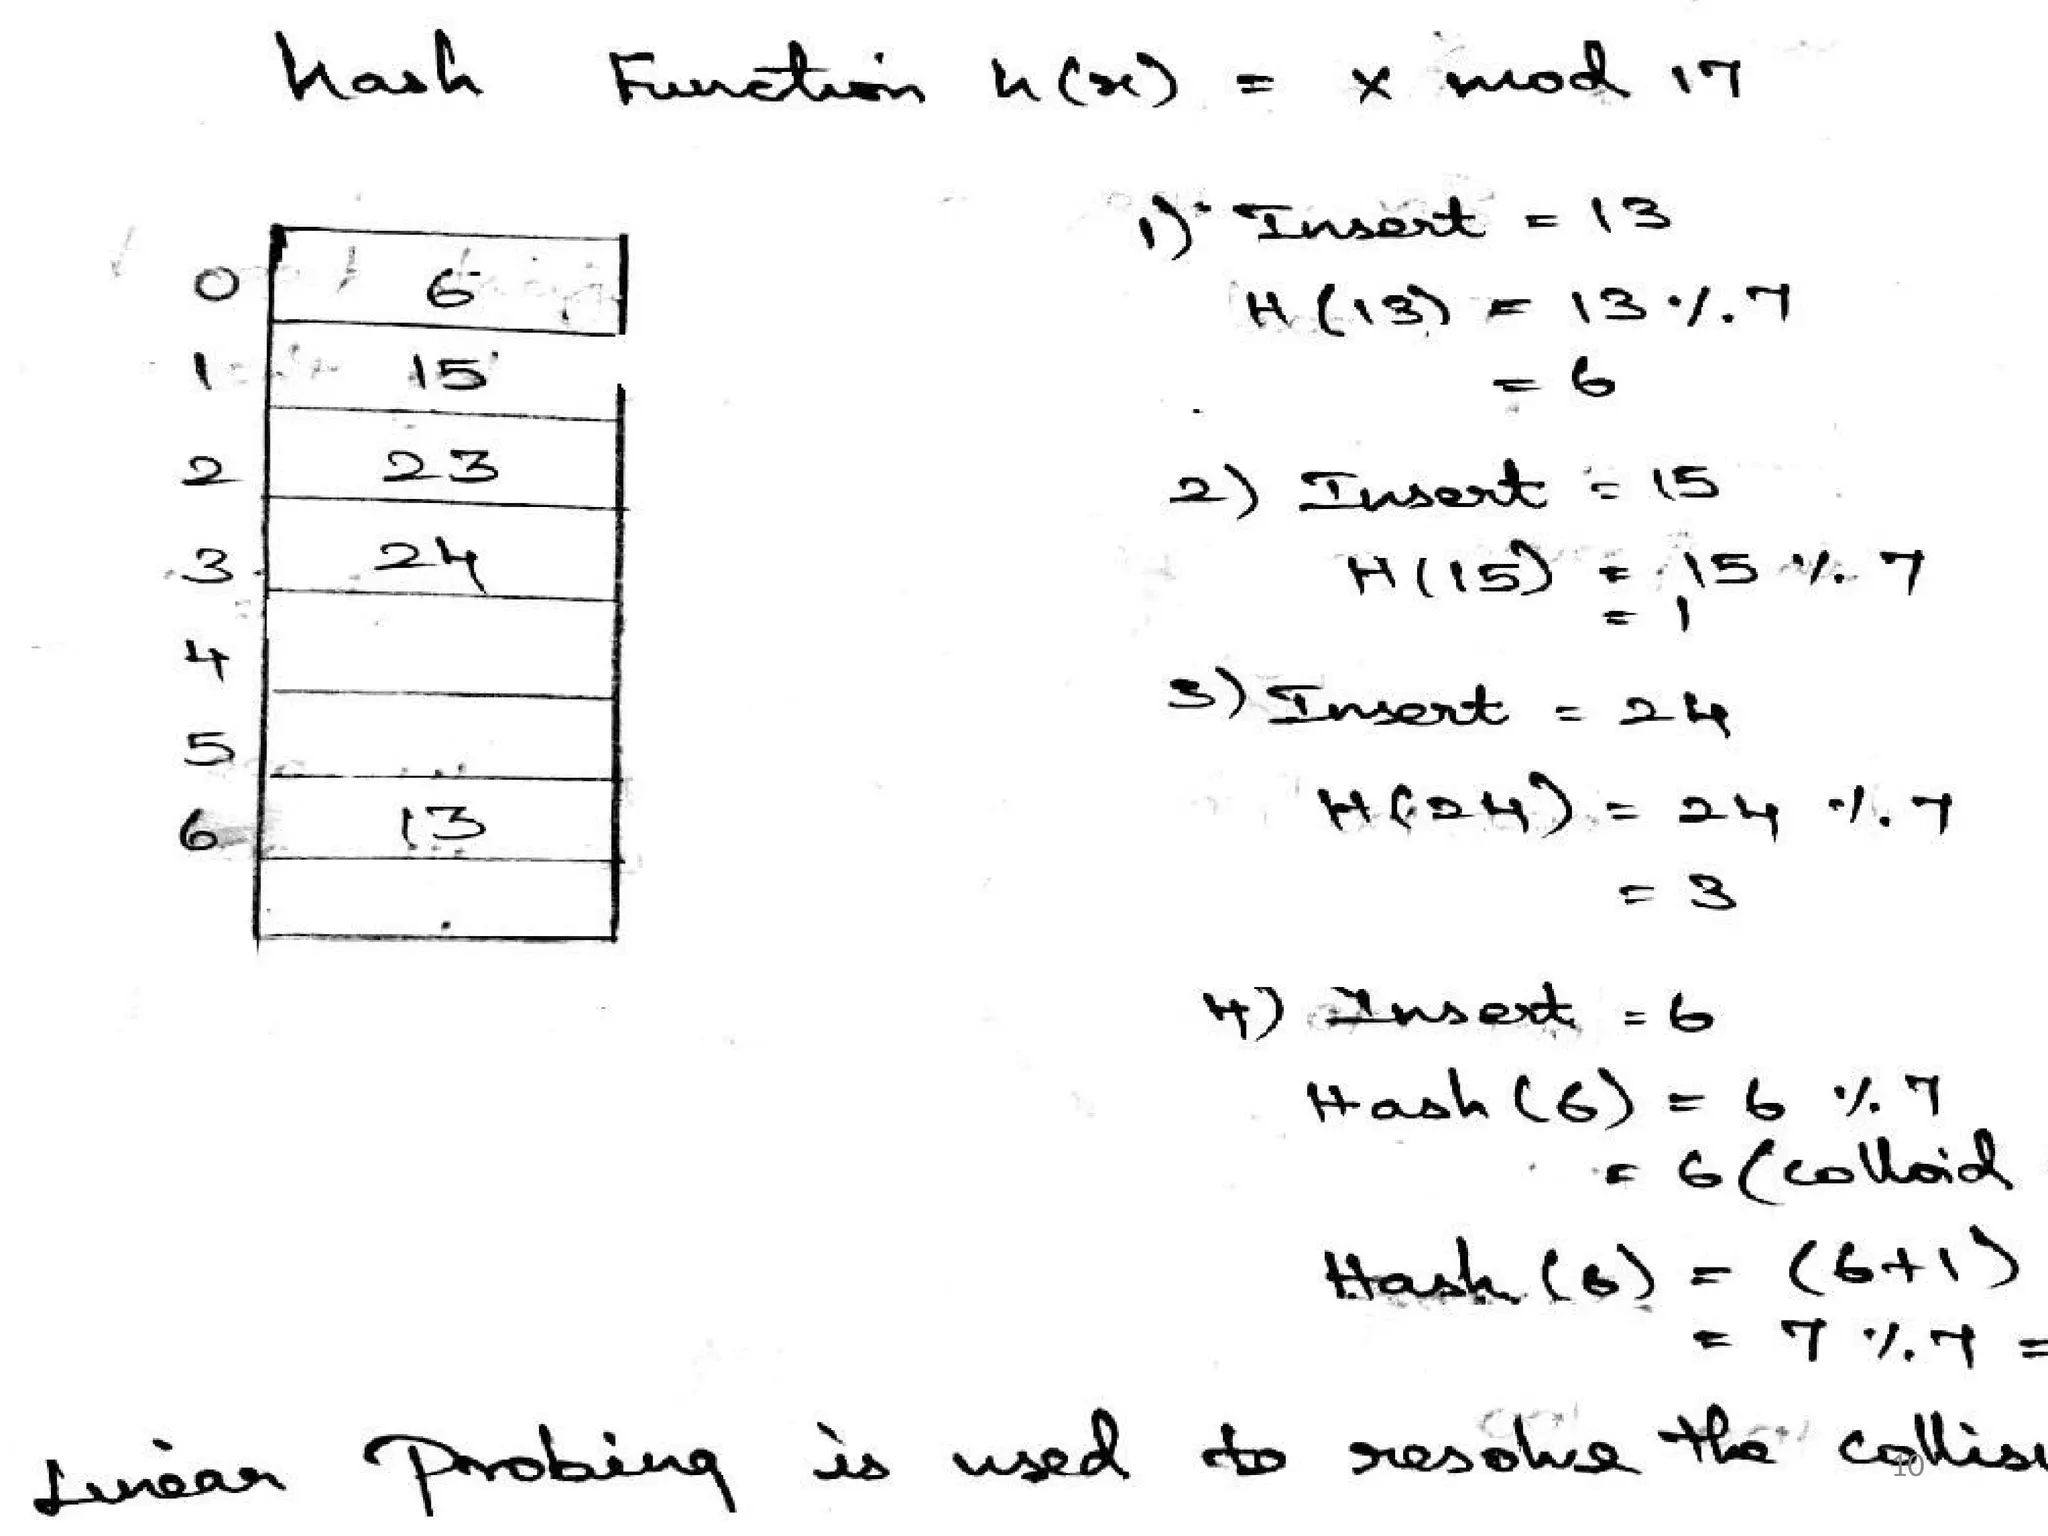 hash Function h(x) = x mod 17
0 6
1 15
2 23
3 24
4
5
6 13
1) Insert = 13
H (13) = 13 %. 7
= 6
2) Insert = 15
H(15) = 15 %. 7
= 1
3) Insert = 24
H(24) = 24 %. 7
= 3
4) Insert = 6
Hash (6) = 6 %. 7
= 6 (colloid
Hash (6) = (6+1)
= 7 %. 7 =
Linear Probing is used to resolve the collisi
10